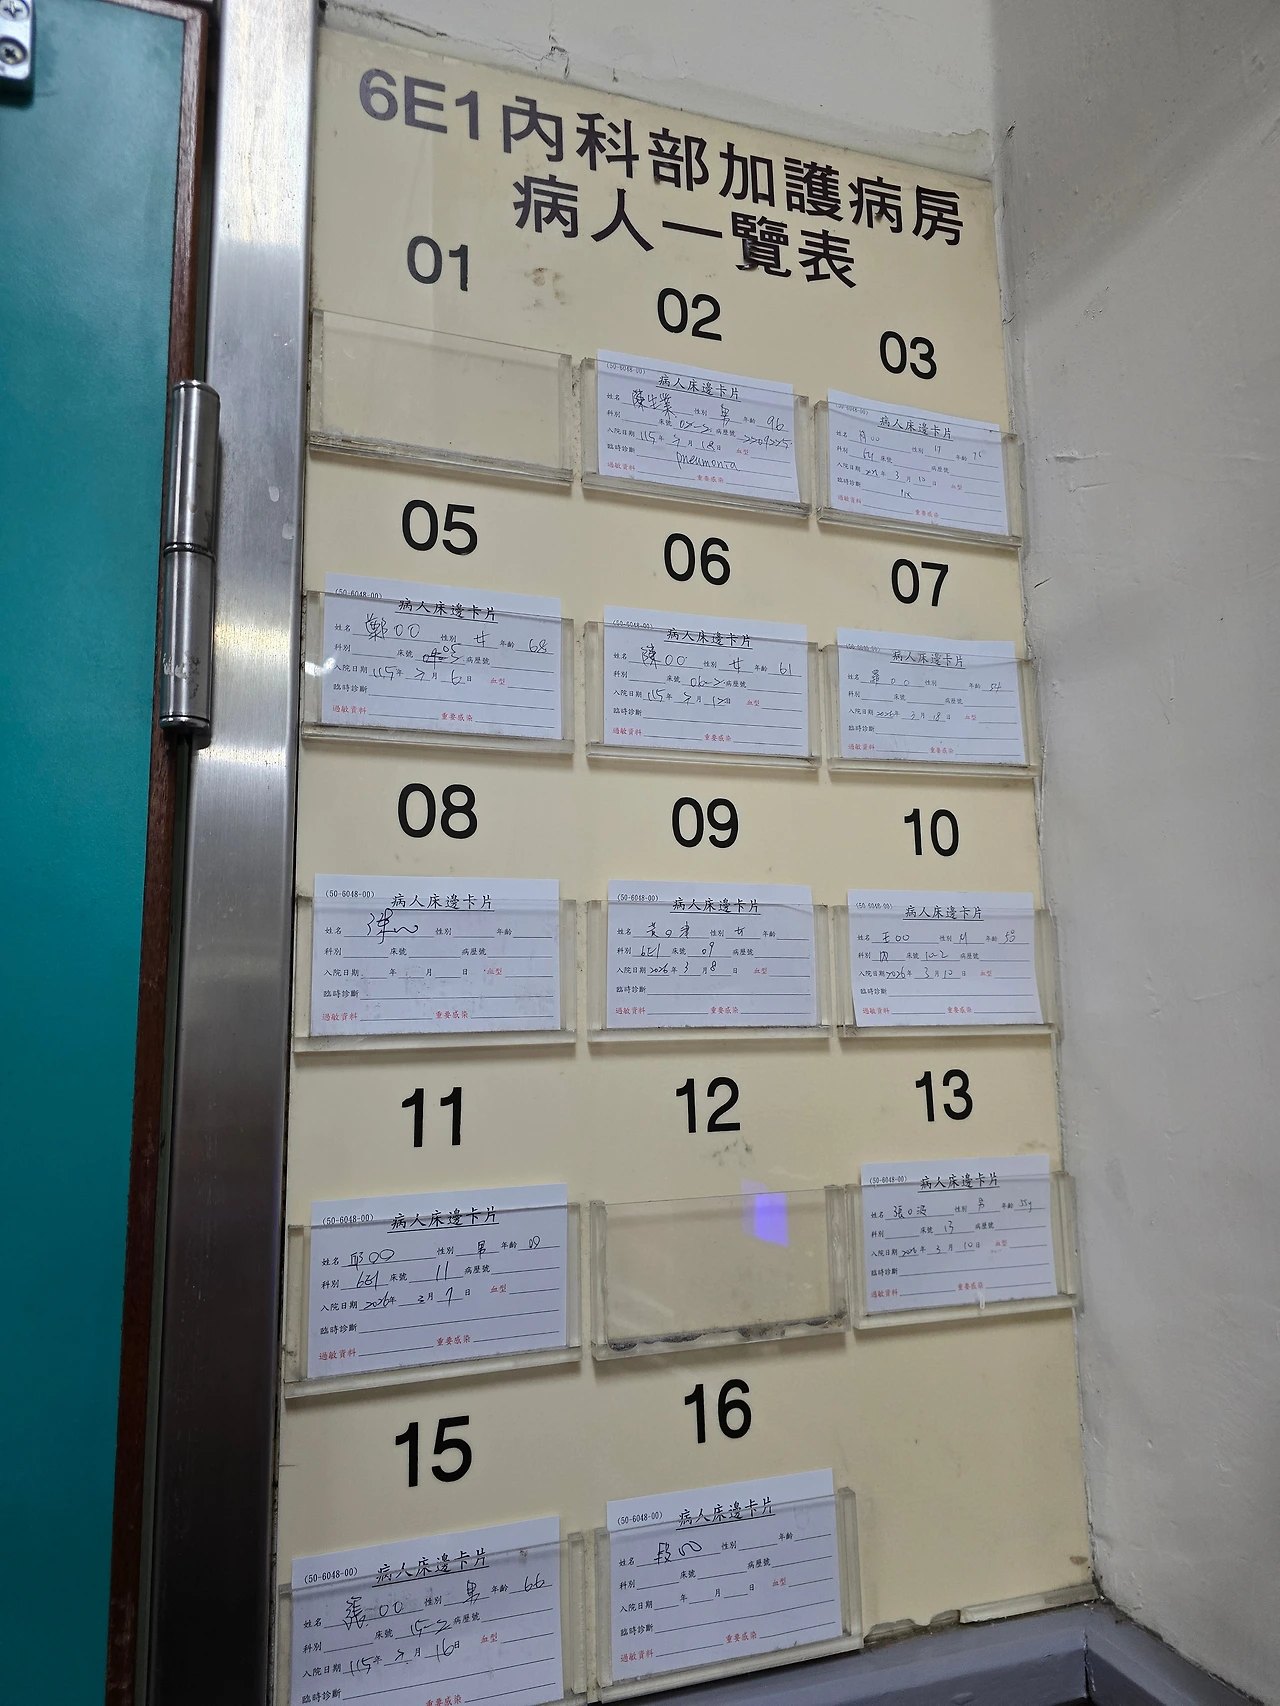 6E1內科部加護病房
病人一覽表
01
02
03
(50-6048-00)
病人床邊卡片
姓名 性別 男 年齡 96
科別 床號 02-2 病歷號
入院日期 115年 月 18日 血型
臨時診斷 pneumonia
過敏資料 重要感染
病人床邊卡片
姓名 性別 年齡
科別 6E1 床號 病歷號
入院日期 年 3月 10日 血型
臨時診斷
過敏資料 重要感染
05
06
07
(50-6048-00)
病人床邊卡片
姓名 鄭OO 性別 女 年齡 68
科別 床號 05 病歷號
入院日期 115年 月 6日 血型
臨時診斷
過敏資料 重要感染
(50-6048-00)
病人床邊卡片
姓名 陳OO 性別 女 年齡 61
科別 床號 06-2 病歷號
入院日期 115年 月 12日 血型
臨時診斷
過敏資料 重要感染
(50-6048-00)
病人床邊卡片
姓名 羅OO 性別 年齡 54
科別 床號 病歷號
入院日期 2026年 3月 18日 血型
臨時診斷
過敏資料 重要感染
08
09
10
(50-6048-00)
病人床邊卡片
姓名 性別 年齡
科別 床號 病歷號
入院日期 年 月 日 血型
臨時診斷
過敏資料 重要感染
(50-6048-00)
病人床邊卡片
姓名 性別 女 年齡
科別 6E1 床號 09 病歷號
入院日期 2026年 3月 8日 血型
臨時診斷
過敏資料 重要感染
(50-6048-00)
病人床邊卡片
姓名 王OO 性別 M 年齡
科別 內 床號 10-2 病歷號
入院日期 2026年 3月 10日 血型
臨時診斷
過敏資料 重要感染
11
12
13
(50-6048-00)
病人床邊卡片
姓名 邱OO 性別 男 年齡
科別 6E1 床號 11 病歷號
入院日期 2026年 3月 7日 血型
臨時診斷
過敏資料 重要感染
(50-6048-00)
病人床邊卡片
姓名 性別 男 年齡 55y
科別 床號 13 病歷號
入院日期 2026年 3月 10日 血型
臨時診斷
過敏資料 重要感染
15
16
(50-6048-00)
病人床邊卡片
姓名 張OO 性別 男 年齡 66
科別 床號 15-2 病歷號
入院日期 115年 月 16日 血型
臨時診斷
重要感染
(50-6048-00)
病人床邊卡片
姓名 段OO 性別 年齡
科別 床號 病歷號
入院日期 年 月 日 血型
臨時診斷
過敏資料 重要感染